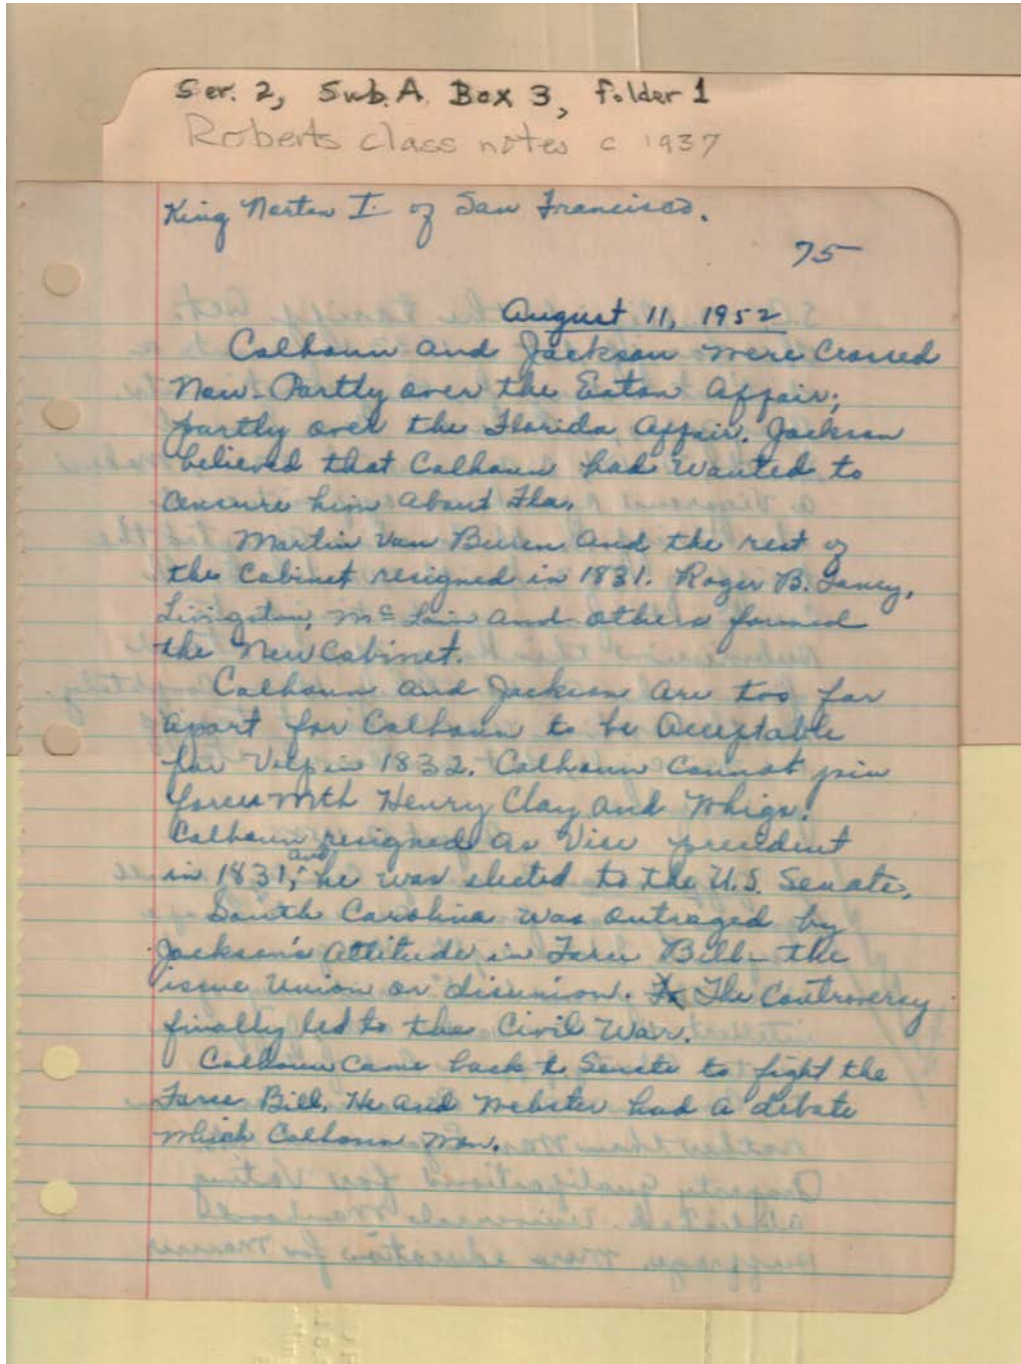 Ser. 2, Sub. A. Box 3, folder 1
Roberts class notes c 1937
King Norton I. of San Francisco.
75
August 11, 1952
Calhoun and Jackson were crossed
Now. Partly over the Eaton Affair;
partly over the Florida, Affair. Jackson
believed that Calhoun had wanted to
censure him about Fla.
Martin Van Buren and the rest of
the Cabinet resigned in 1831. Roger B. Taney,
Livingston, Mc Lain and others formed
the New Cabinet.
Calhoun and Jackson are too far
apart for Calhoun to be Acceptable
for V.P. in 1832. Calhoun cannot join
forces with Henry Clay and Whigs.
Calhoun resigned as Vice president
in 1831, and he was elected to the U.S. Senate,
South Carolina was outraged by
Jackson's attitude in Force Bill - the
issue Union or disunion. The Controversy
finally led to the Civil War.
Calhoun came back to Senate to fight the
Force Bill. He and Webster had a debate
which Calhoun won.